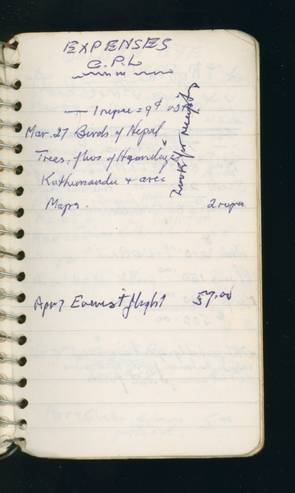 EXPENSES
C.P.L
— 1 rupee = 9¢ US
Mar. 27 Birds of Nepal
Trees, flws of
Kathmandu + area
Maps. 2 rupee
look for receipt
Apr 7 Everest flight 57.00